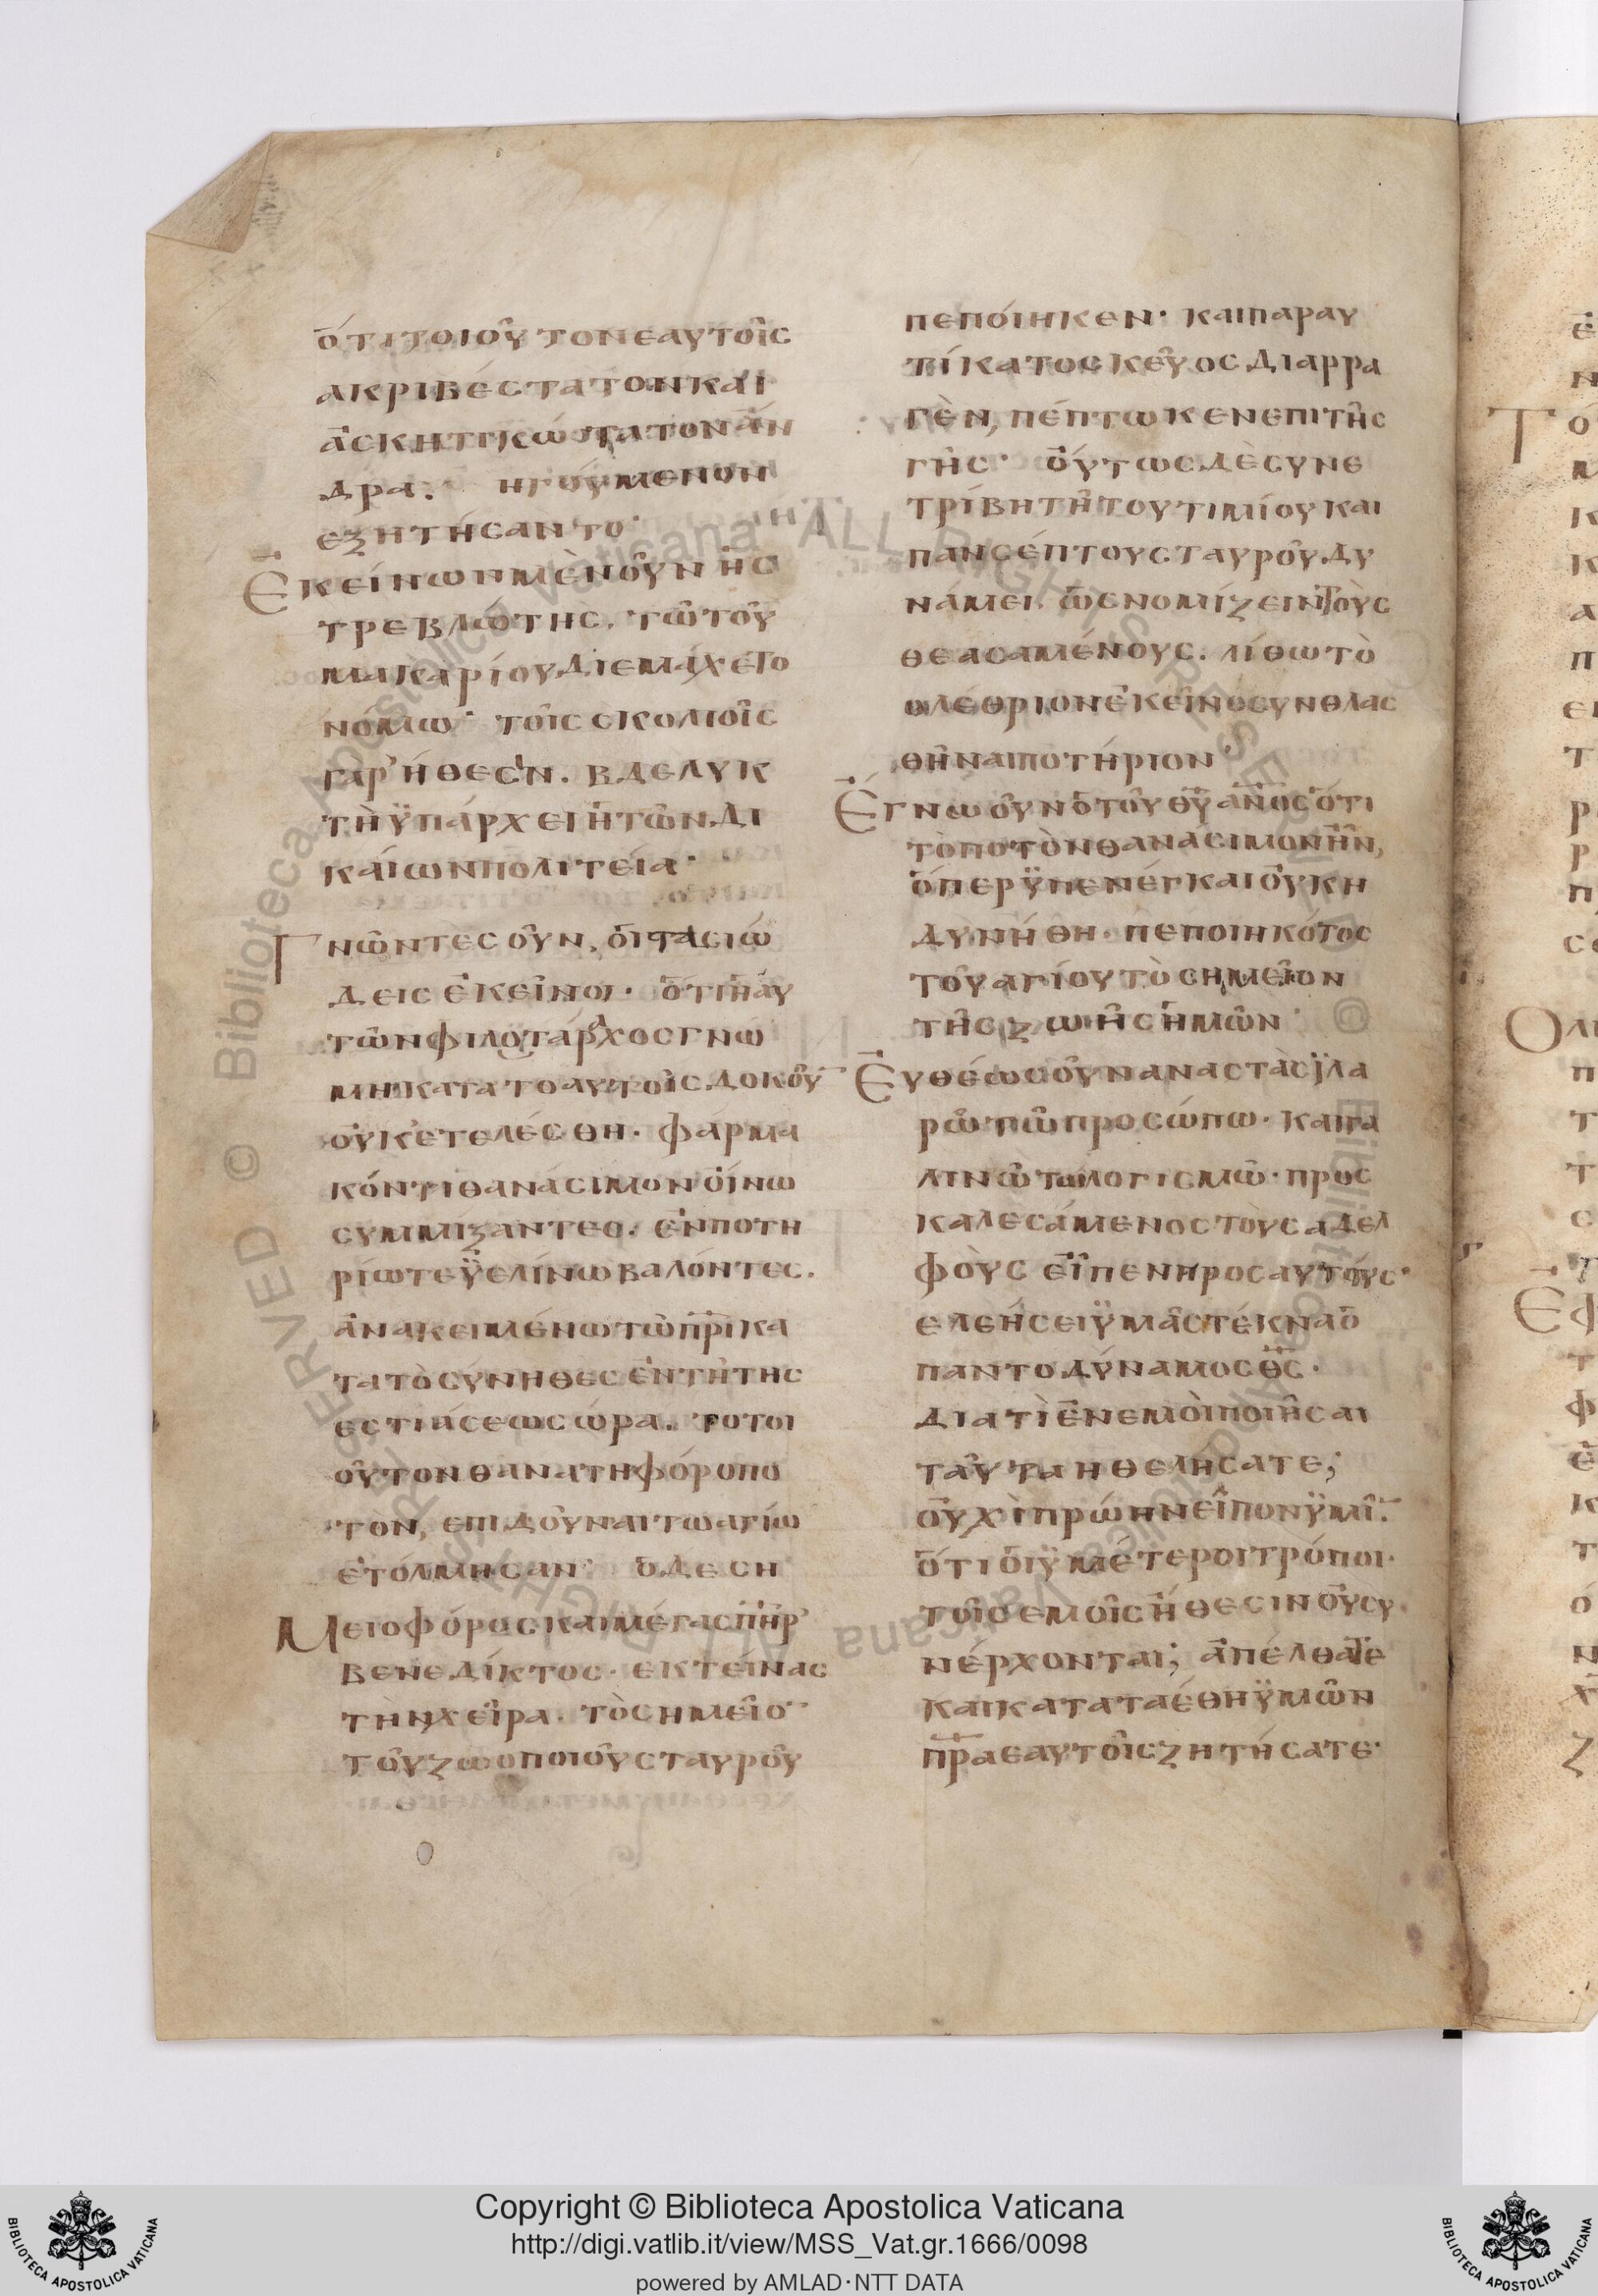 ὅτι τοιοῦτον ἑαυτοῖς
ἀκριβέστατον καὶ
ἀσκητικώτατον ἄν
δρα. ἡγούμενον
ἐζητήσαντο·
Ἐκείνων μὲν οὖν ἡ σ
τρεβλότης. τῶ τοῦ
μακαρίου διεμάχετο
νόμω· τοῖς σκολιοῖς
γὰρ ἤθεσιν. βδελυκ
τὴ ϋπάρχει ἡ τῶν δι
καίων πολιτεία·
Γνῶντες οὖν, οἱ στασιώ
δεις ἐκεῖνοι· ὅτι ἡ αυ
τῶν φιλόταρχος γνώ
μη κατα το αυτοῖς δοκοῦ̅
οὐκ ἐτελέσθη· φάρμα
κόν τι θανάσιμον οἴνω
συμμίξαντες. ἐν ποτη
ρίω τε ϋελίνω βαλόντες.
ἀνακειμένω τῶ πρ̅ι κα
τα τὸ σύνηθες ἐν τῆ τῆς
εστιάσεως ώρα. το τοι
οῦτον θανατηφόρο πο
τὸν, επιδοῦναι τω αγίω
ἐτόλμησαν· ὁ δε ση
Μειοφόρος και μέγας πη̅ρ
βενεδίκτος· εκτείνας
τὴν χεῖρα· τὸ σημεῖο̅
τοῦ ζωοποιοῦ σταυροῦ
πεπόιηκεν· και παραυ
τίκα το σκεῦος διαρρα
γὲν, πέπτωκεν επι τῆς
γῆς· οὕτως δὲ συνε
τρίβη τῆ του τιμίου και
πανσέπτου σταυροῦ δυ
νάμει. ὡς νομίζειν τοὺς
θεασαμένους. λίθω τὸ
ολέθριον ἐκεῖνο συνθλασ
θῆναι ποτήριον·
Ἔγνω οὖν ὁ τοῦ θυ̅ αν̅ος ὅτι
τὸ ποτὸν θανάσιμον ἦν,
ὅπερ ϋπενέγκαι οὐκ η
δυνήθη· πεποιηκότος
τοῦ αγίου τὸ σημεῖον
τῆς ζωῆς ἡμῶν·
Ἐυθέως οὖν αναστὰς ϊλα
ρῶ τῶ προσώπω· και γα
ληνῶ τῶ λογισμῶ· προσ
καλεσάμενος τοὺς αδελ
φοὺς εἶπεν προς αυτούς·
ελεήσει ϋμᾶς τέκνα ὁ
παντοδύναμος θς̅·
δια τὶ ἐν εμοὶ ποιῆσαι
ταῦτα ηθελήσατε;
οὐχὶ πρώην εἶπον ϋμῖ̅·
ὅτι οἱ ϋμέτεροι τρόποι·
τοῖς εμοῖς ήθεσιν οὐ συ
νέρχονται; ἀπέλθατε
και κατα τα έθη ϋμῶν
πρ̅α εαυτοῖς ζητήσατε·
Copyright © Biblioteca Apostolica Vaticana
http://digi.vatlib.it/view/MSS_Vat.gr.1666/0098
powered by AMLAD·NTT DATA